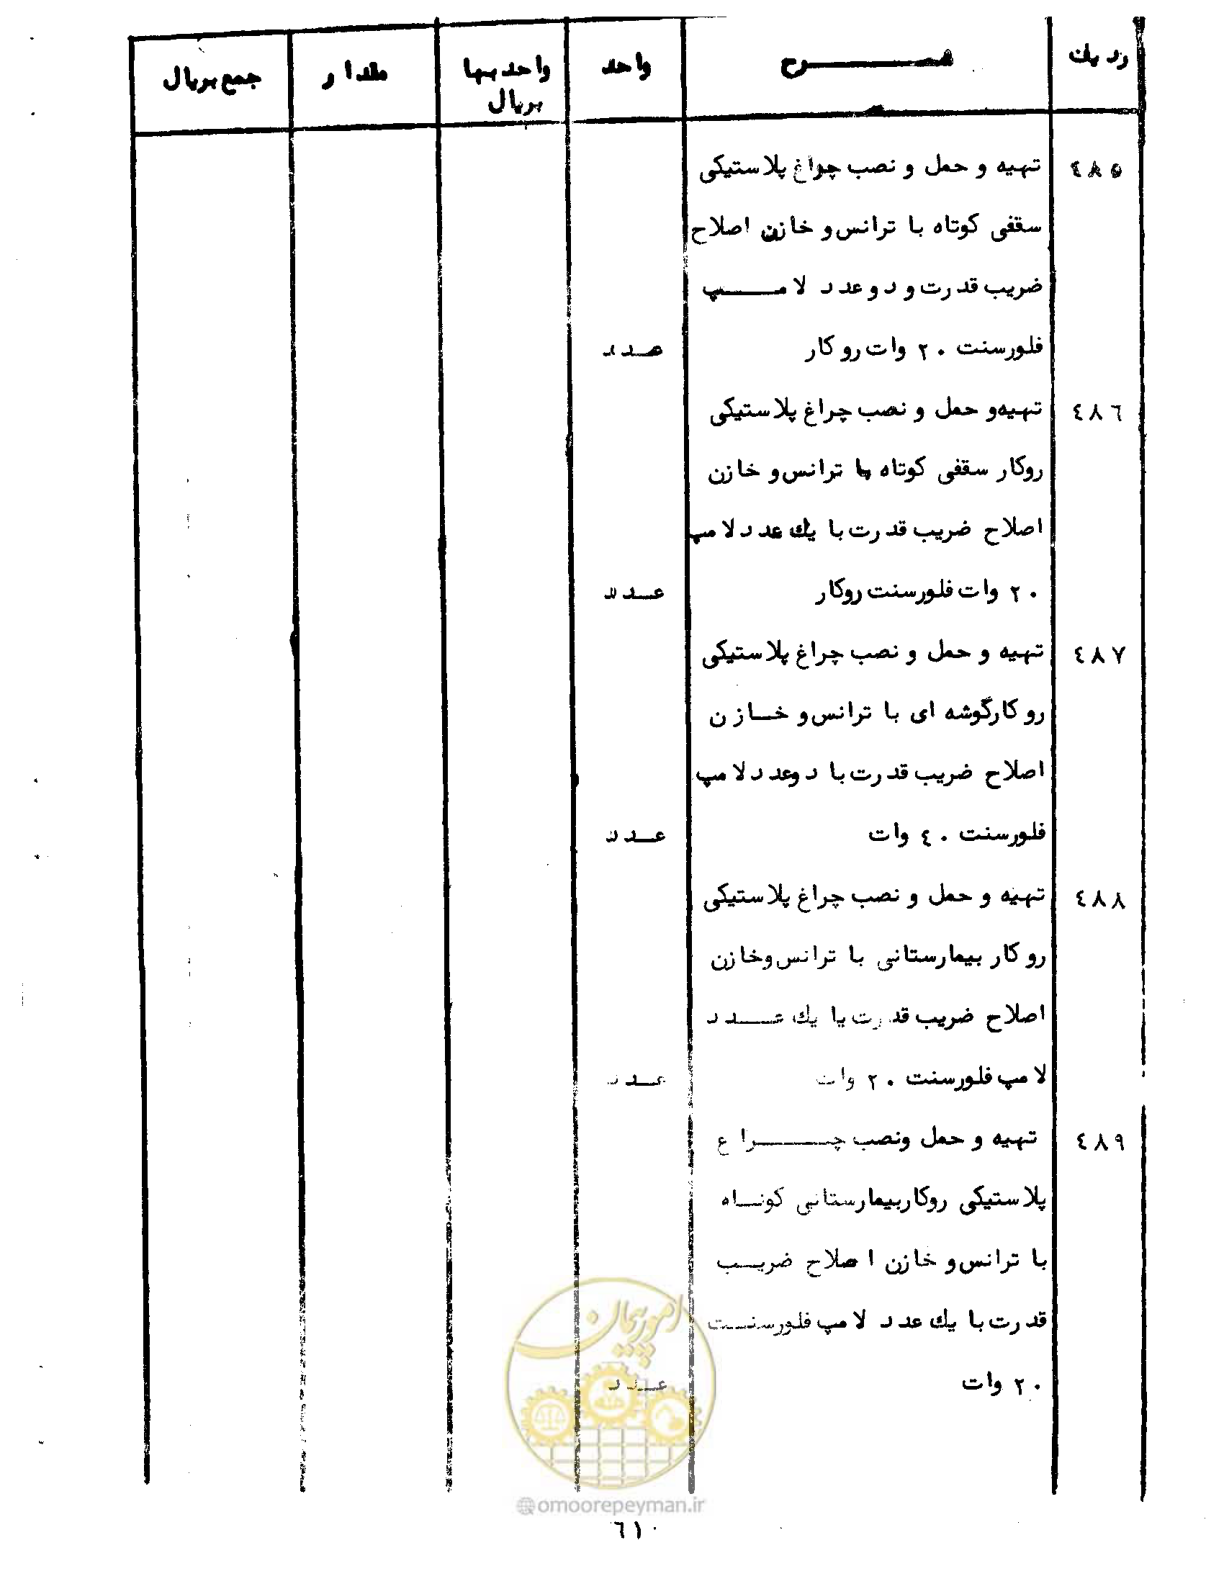 ردیف شـــرح واحد واحد بها بریال مقدار جمع بریال
٤٨٥ تهیه و حمل و نصب چراغ پلاستیکی
سقفی کوتاه با ترانس و خازن اصلاح
ضریب قدرت و دو عدد لامـــپ
فلورسنت ٢٠ وات روکار عـدد
٤٨٦ تهیه و حمل و نصب چراغ پلاستیکی
روکار سقفی کوتاه با ترانس و خازن
اصلاح ضریب قدرت با یك عدد لامپ
٢٠ وات فلورسنت روکار عـدد
٤٨٧ تهیه و حمل و نصب چراغ پلاستیکی
روکارگوشه ای با ترانس و خـازن
اصلاح ضریب قدرت با دوعدد لامپ
فلورسنت ٤٠ وات عـدد
٤٨٨ تهیه و حمل و نصب چراغ پلاستیکی
روکار بیمارستانی با ترانس وخازن
اصلاح ضریب قدرت با یك عـــدد
لامپ فلورسنت ٢٠ وات عـدد
٤٨٩ تهیه و حمل ونصب چــــراغ
پلاستیکی روکاربیمارستانی کوتـاه
با ترانس و خازن اصلاح ضریـب
قدرت با یك عدد لامپ فلورسنـت
٢٠ وات عـدد
امور پیمان
@omoorepeyman.ir
٦١٠